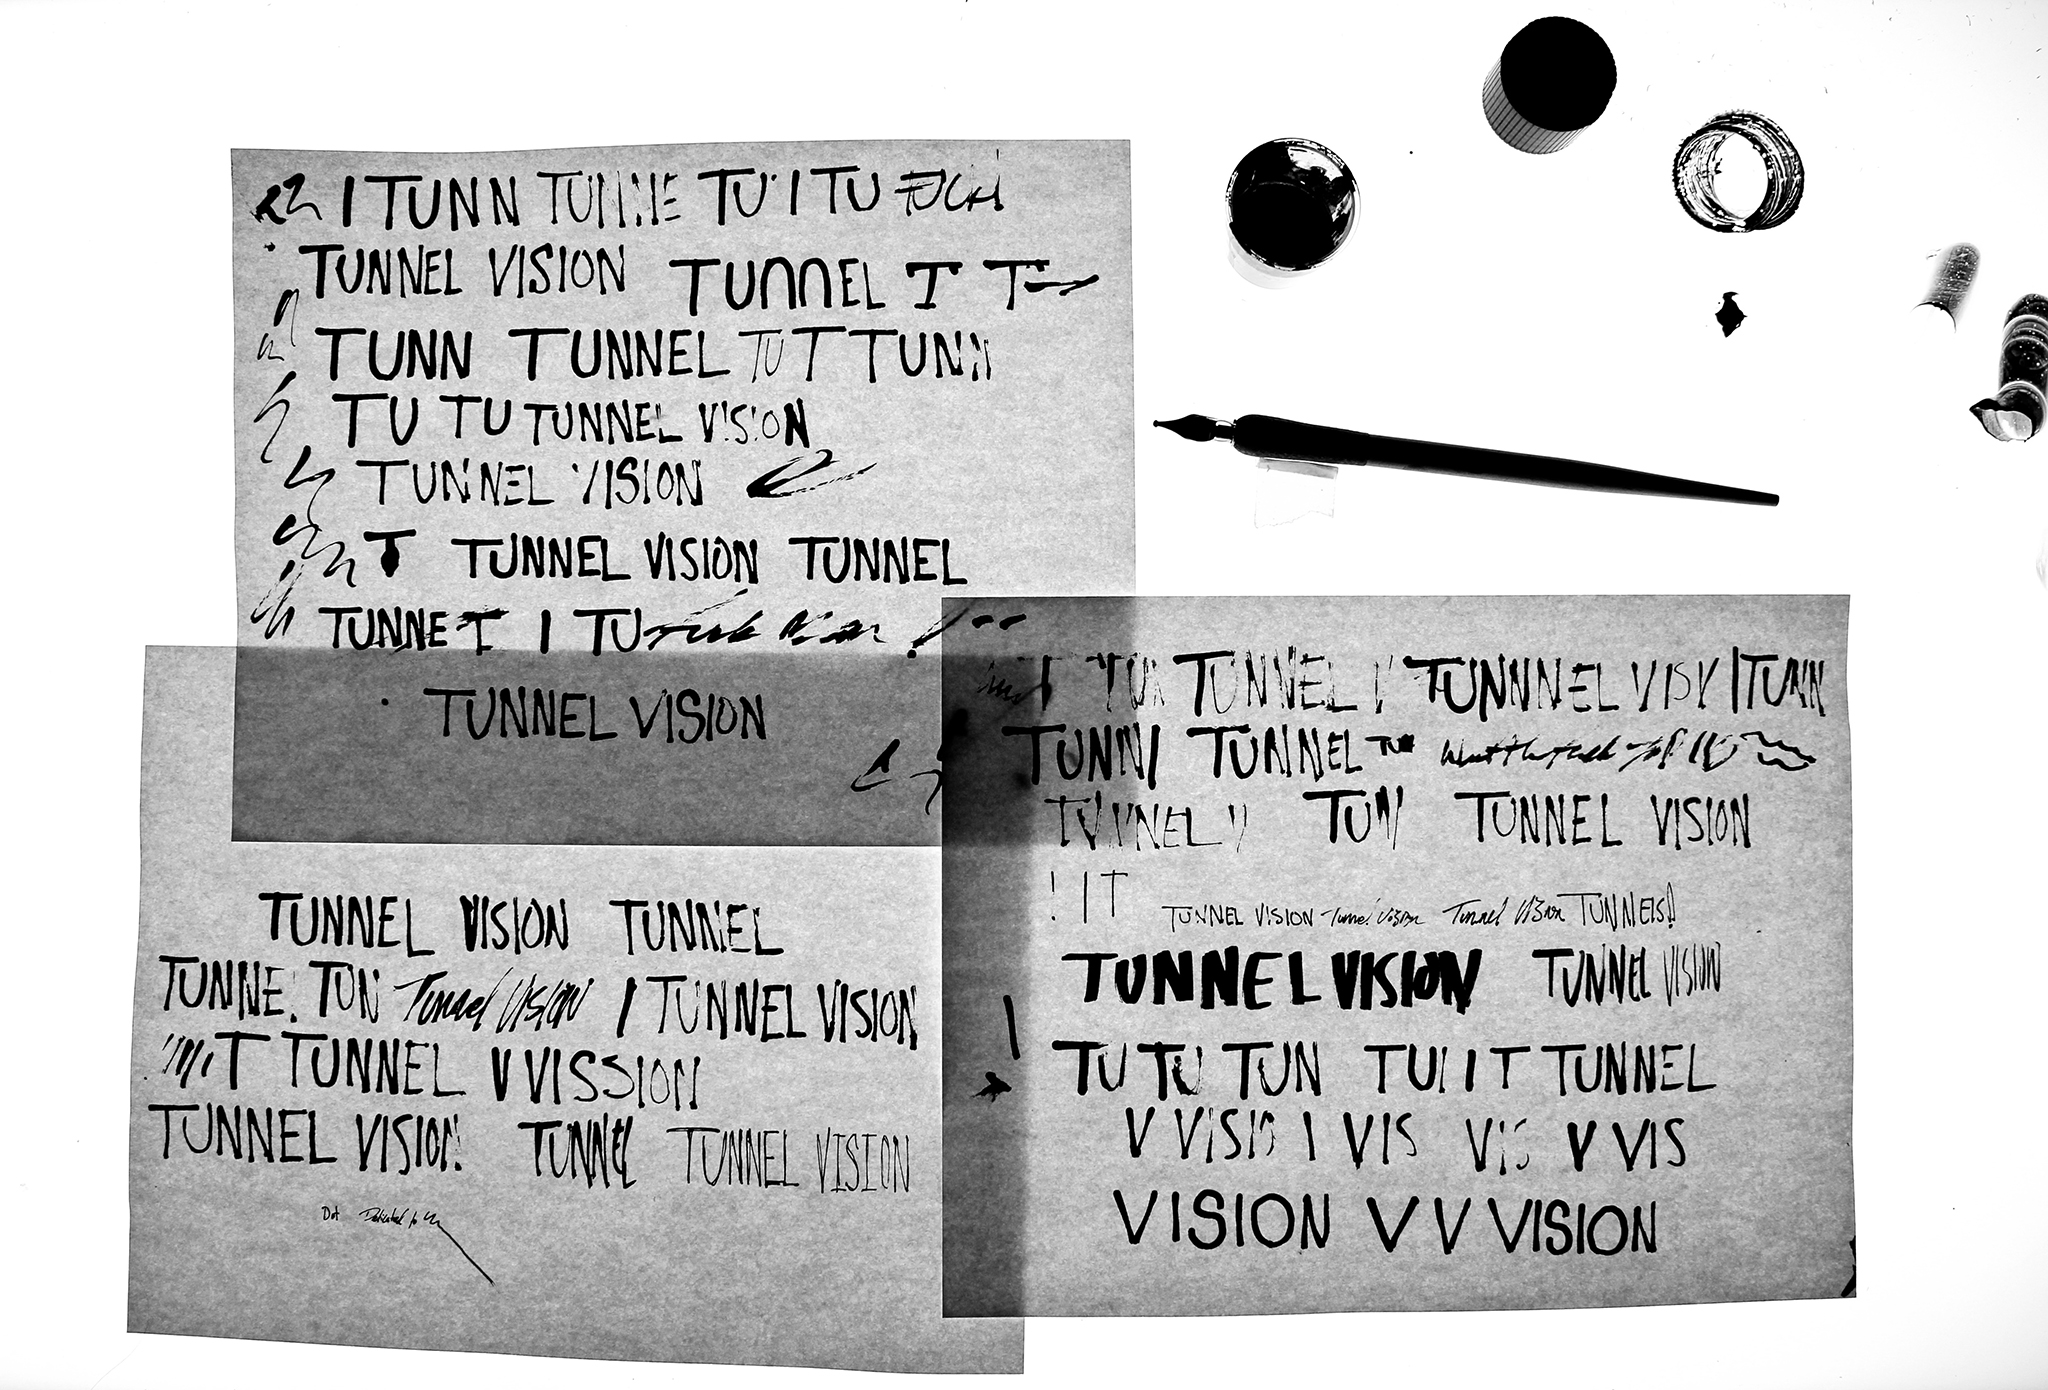 I TUNN TUNNE TU I TU
TUNNEL VISION TUNNEL T T
TUNN TUNNEL TU T TUNN
TU TU TUNNEL VISION
TUNNEL VISION
T TUNNEL VISION TUNNEL
TUNNE T I TU
TUNNEL VISION
TUNNEL VISION TUNNEL
TUNNE TUN Tunnel VISION I TUNNEL VISION
T TUNNEL V VISSION
TUNNEL VISION TUNNEL TUNNEL VISION
Dot Dedicated to
T TUN TUNNEL V TUNNNEL VISV I TUNN
TUNN I TUNNEL TUN
TUNNEL V TUN TUNNEL VISION
! I T
TUNNEL VISION Tunnel Vision Tunnel Vision TUNNELS!!
TUNNEL VISION TUNNEL VISION
TU TU TUN TUI I T TUNNEL
V VISIO I VIS VIS V VIS
VISION V V VISION